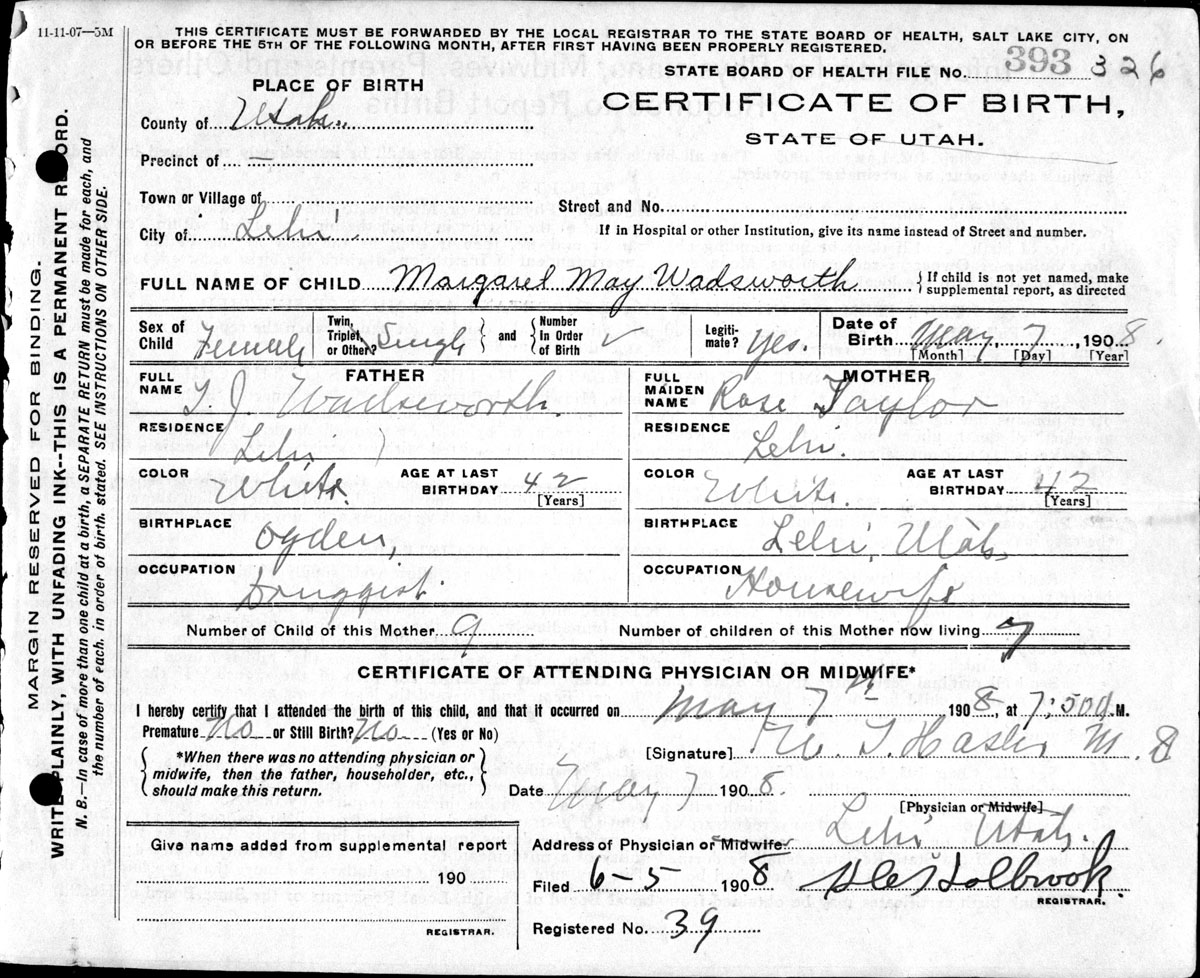 11-11-07—5M
THIS CERTIFICATE MUST BE FORWARDED BY THE LOCAL REGISTRAR TO THE STATE BOARD OF HEALTH, SALT LAKE CITY, ON
OR BEFORE THE 5TH OF THE FOLLOWING MONTH, AFTER FIRST HAVING BEEN PROPERLY REGISTERED.
STATE BOARD OF HEALTH FILE NO. 393 326
PLACE OF BIRTH
CERTIFICATE OF BIRTH,
STATE OF UTAH.
County of Utah
Precinct of —
Town or Village of
Street and No.
City of Lehi
If in Hospital or other Institution, give its name instead of Street and number.
FULL NAME OF CHILD Margaret May Wadsworth { If child is not yet named, make
supplemental report, as directed
Sex of Child Female
Twin, Triplet, or Other? Single } and { Number In Order of Birth ✓
Legiti-mate? Yes.
Date of Birth May, 7, 1908.
[Month] [Day] [Year]
FATHER
FULL NAME Wadsworth.
RESIDENCE Lehi
COLOR White. AGE AT LAST BIRTHDAY 42
[Years]
BIRTHPLACE Ogden,
OCCUPATION Druggist.
MOTHER
FULL MAIDEN NAME Rose Taylor
RESIDENCE Lehi.
COLOR White. AGE AT LAST BIRTHDAY 42
[Years]
BIRTHPLACE Lehi, Utah.
OCCUPATION Housewife
Number of Child of this Mother 9 Number of children of this Mother now living 7
CERTIFICATE OF ATTENDING PHYSICIAN OR MIDWIFE*
I hereby certify that I attended the birth of this child, and that it occurred on May 7th 1908, at 7:50 M.
Premature No or Still Birth? No (Yes or No)
*When there was no attending physician or
midwife, then the father, householder, etc.,
should make this return.
[Signature] M. D
Date May 7 1908.
[Physician or Midwife]
Give name added from supplemental report
190
REGISTRAR.
Address of Physician or Midwife Lehi Utah.
Filed 6-5 1908 Holbrook.
REGISTRAR.
Registered No. 39
MARGIN RESERVED FOR BINDING.
WRITE PLAINLY, WITH UNFADING INK--THIS IS A PERMANENT RECORD.
N. B.—In case of more than one child at a birth, a SEPARATE RETURN must be made for each, and
the number of each, in order of birth, stated. SEE INSTRUCTIONS ON OTHER SIDE.